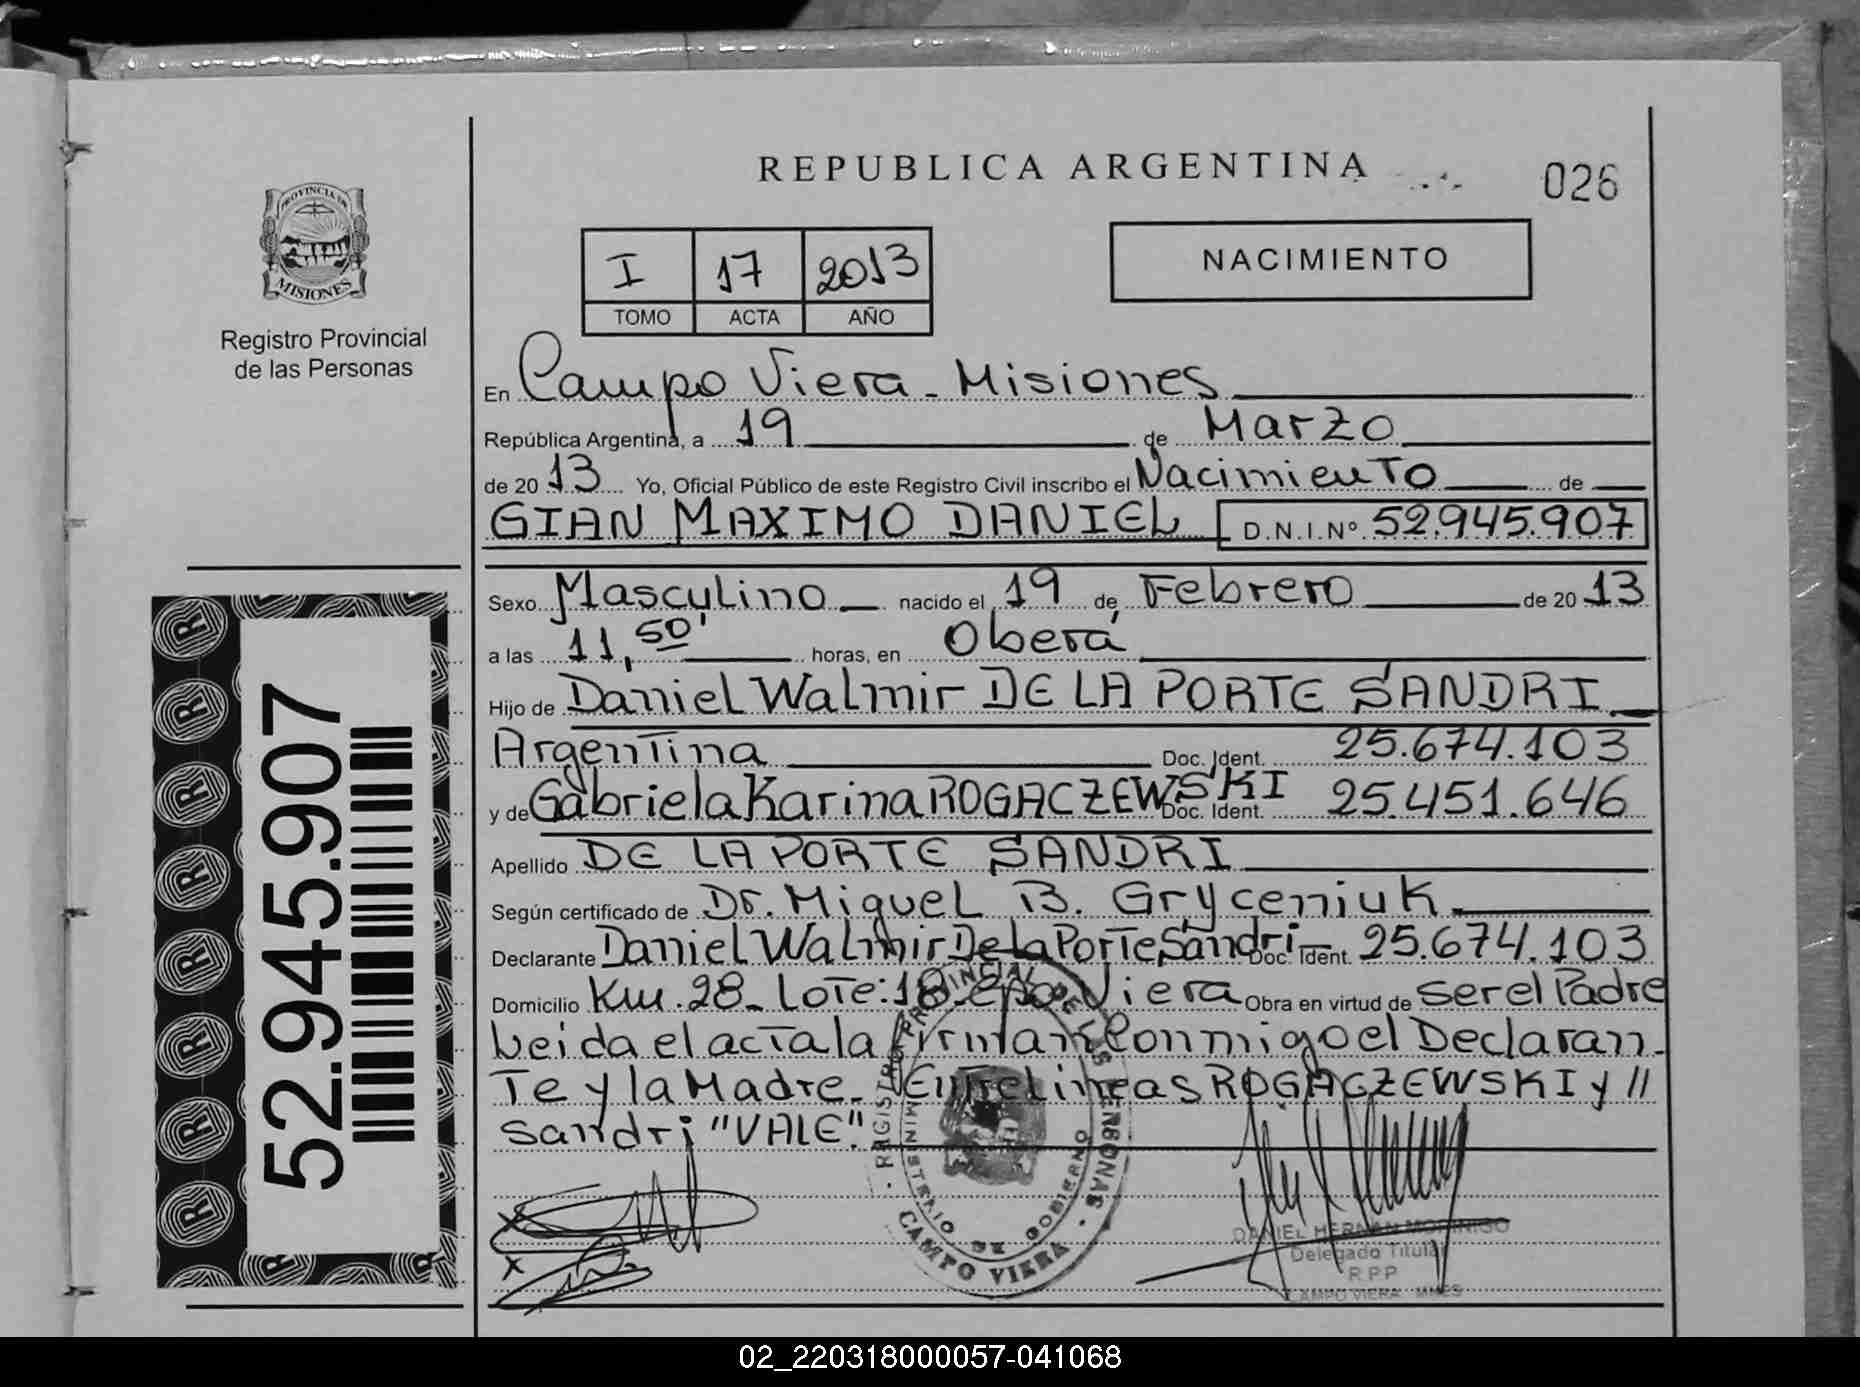 REPUBLICA ARGENTINA
026
PROVINCIA DE
MISIONES
Registro Provincial
de las Personas
I 17 2013
TOMO ACTA AÑO
NACIMIENTO
En Campo Viera - Misiones
República Argentina, a 19 de Marzo
de 20 13 Yo, Oficial Público de este Registro Civil inscribo el Nacimiento de
GIAN MAXIMO DANIEL D.N.I.Nº 52.945.907
Sexo Masculino nacido el 19 de Febrero de 20 13
a las 11,50' horas, en Oberá
Hijo de Daniel Walmir DE LA PORTE SANDRI
Argentina Doc. Ident. 25.674.103
y de Gabriela Karina ROGACZEWSKI Doc. Ident. 25.451.646
Apellido DE LA PORTE SANDRI
Según certificado de Dr. Miguel B. Gryceniuk
Declarante Daniel Walmir De la Porte Sandri Doc. Ident. 25.674.103
Domicilio Km. 28- Lote:18- Cpo. Viera Obra en virtud de ser el Padre
Leida el acta la firman Conmigo el Declaran-
te y la Madre.- Entrelineas ROGACZEWSKI y //
Sandri "VALE".
52.945.907
REGISTRO PROVINCIAL DE LAS PERSONAS
MINISTERIO DE GOBIERNO
CAMPO VIERA
X
X
DANIEL HERNAN MORINIGO
Delegado Titular
R.P.P
CAMPO VIERA MNES
02_220318000057-041068